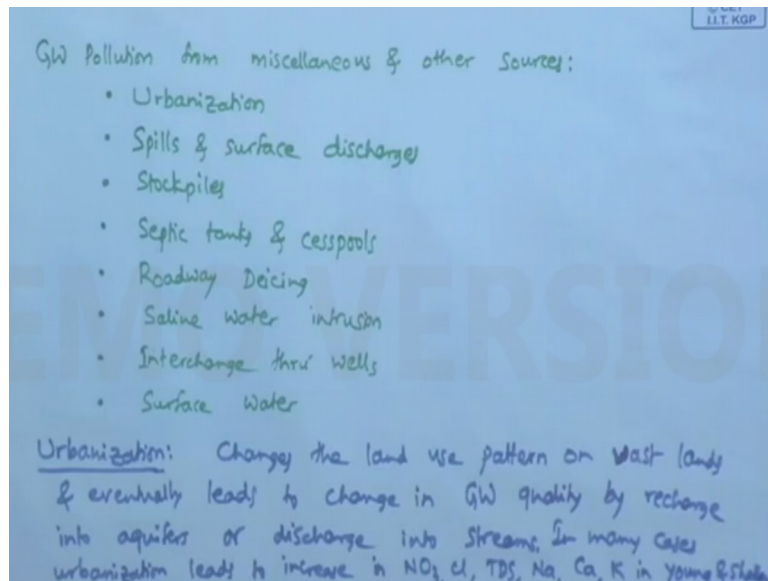 © CET
I.I.T. KGP
GW Pollution from miscellaneous & other Sources:
• Urbanization
• Spills & surface discharges
• Stockpiles
• Septic tanks & cesspools
• Roadway Deicing
• Saline water intrusion
• Interchange thru' wells
• Surface Water
EMO VERSION
Urbanization: Changes the land use pattern on vast lands
& eventually leads to change in GW quality by recharge
into aquifers or discharge into streams. In many cases
urbanization leads to increase in NO3, Cl, TDS, Na, Ca, K in young &